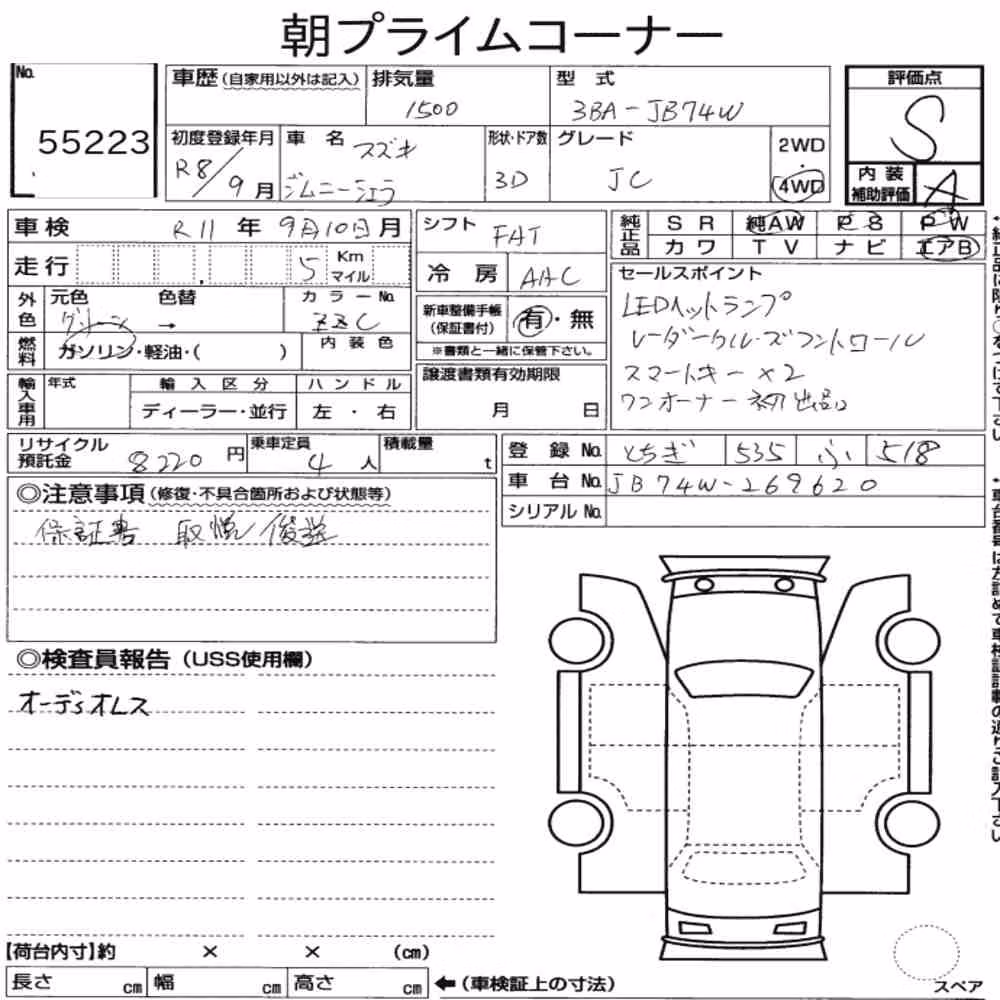 朝プライムコーナー
No.
55223
車歴(自家用以外は記入) 排気量 型 式 評価点
1500 3BA-JB74W S
初度登録年月 車 名 形状・ドア数 グレード 2WD
R8/9月 スズキ 3D JC ・
ジムニーシエラ 4WD 内装補助評価 A
車検 R11 年 9月10日 月 シフト FAT 純正品 SR 純AW PS PW
カワ TV ナビ エアB
走行 5 Km マイル 冷房 AAC セールスポイント
外色 元色 色替 カラーNo. 新車整備手帳(保証書付) 有・無 LEDヘットランプ
グリーン → ZZC レーダークルーズコントロール
燃料 ガソリン・軽油・( ) 内装色 ※書類と一緒に保管下さい。 スマートキー×2
輸入車用 年式 輸入区分 ハンドル 譲渡書類有効期限 ワンオーナー 初出品
ディーラー・並行 左・右 月 日
リサイクル預託金 8220 円 乗車定員 4 人 積載量 t 登録No. とちぎ 535 ふ 518
車台No. JB74W-269620
◎注意事項(修復・不具合箇所および状態等) シリアルNo.
保証書 取説/後送
◎検査員報告(USS使用欄)
オーディオレス
【荷台内寸】約 × × (cm)
長さ cm 幅 cm 高さ cm ←(車検証上の寸法)
スペア